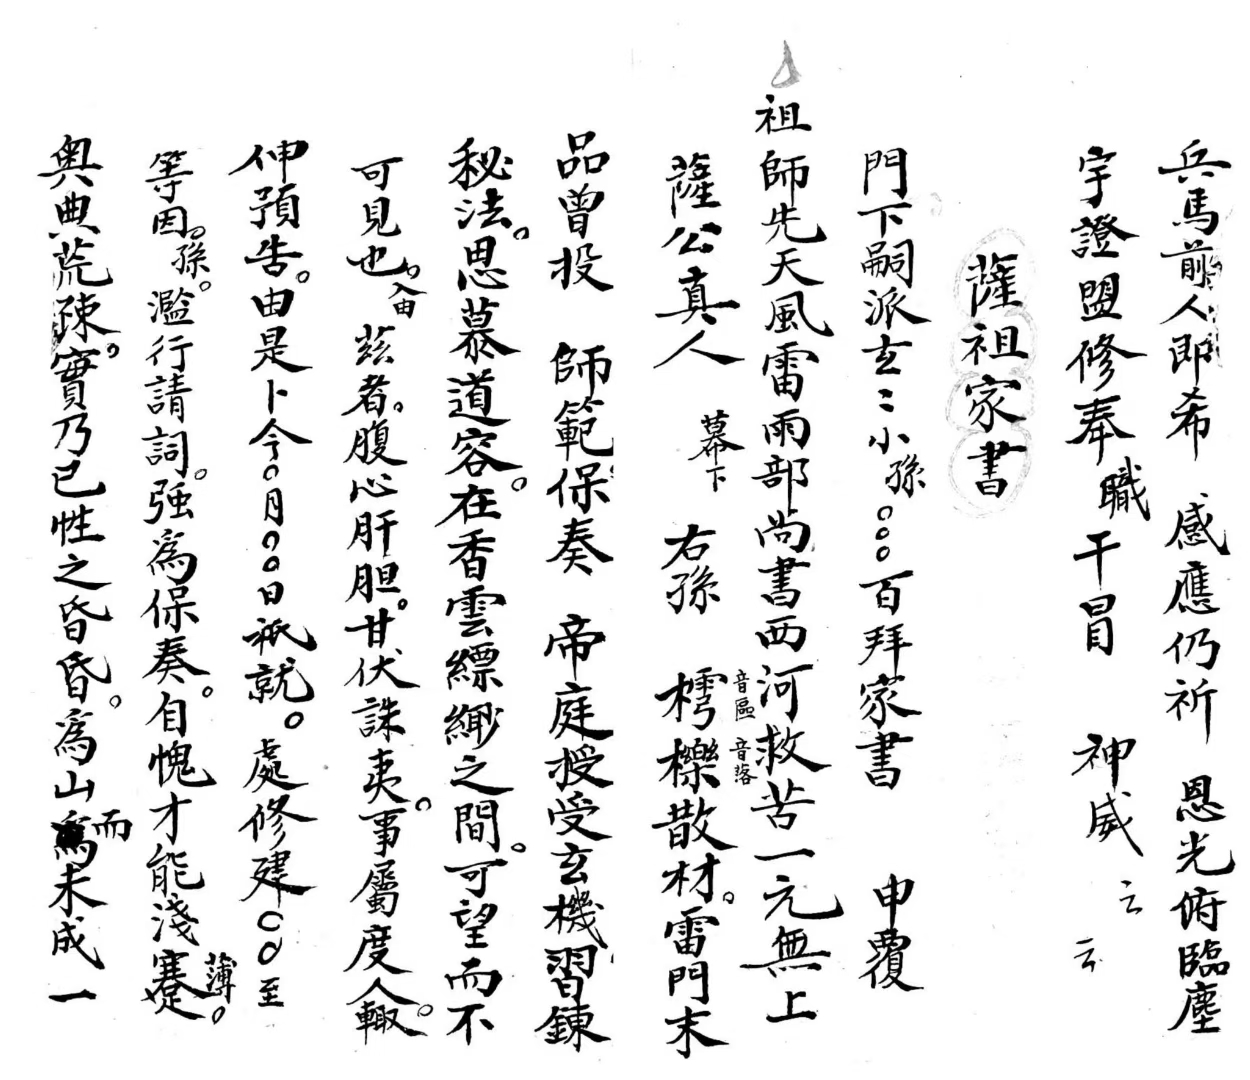 兵馬前人即希　感應仍祈　恩光俯臨塵
宇證盟修奉職干冒　神威云云
薩祖家書
門下嗣派玄〻小孫〇〇〇百拜家書　申覆
祖師先天風雷雨部尚書西河救苦一元無上
薩公真人　幕下　右孫　樗音區櫟音落散材。雷門末
品曾投　師範保奏　帝庭授受玄機習鍊
秘法。思慕道容。在香雲縹緲之間。可望而不
可見也。入由　茲者。腹心肝胆。甘伏誅夷。事屬度人輙。
伸預告。由是卜今〇月〇〇日祇就。處修建〇〇至
等因。孫。濫行請詞。強為保奏。自愧才能淺薄蹇。
奥典荒疎。實乃已性之昏昏。為山而未成一